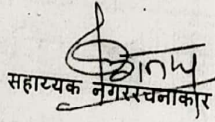 सहाय्यक नगररचनाकार